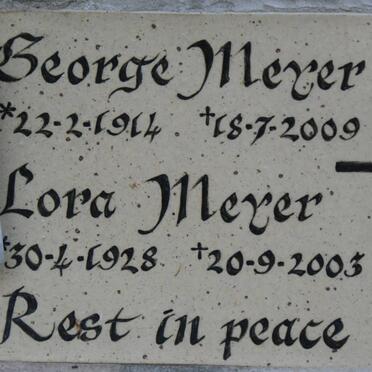 George Meyer
*22-2-1914 †18-7-2009
Lora Meyer
*30-4-1928 †20-9-2003
Rest in peace